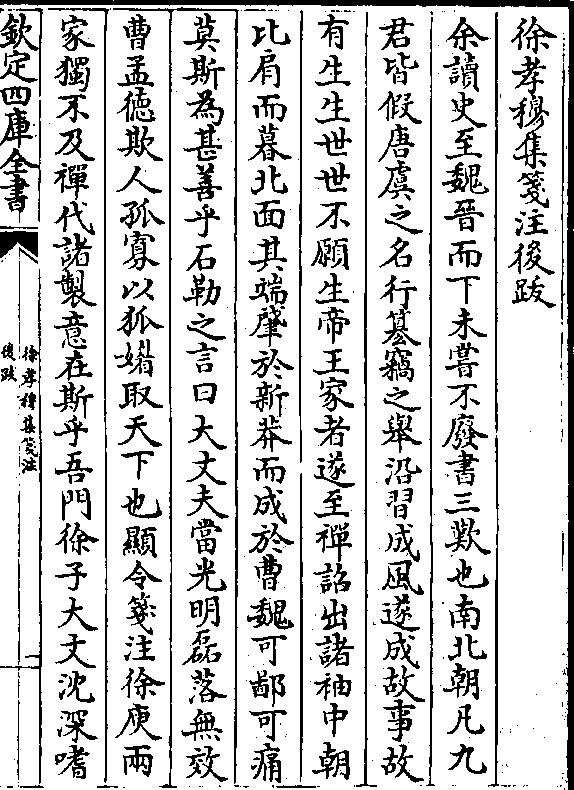 徐孝穆集箋注後跋
余讀史至魏晉而下未嘗不廢書三歎也南北朝凡九
君皆假唐虞之名行簒竊之舉沿習成風遂成故事故
有生生世世不願生帝王家者遂至禪詔出諸袖中朝
比肩而暮北面其端肇於新莽而成於曹魏可鄙可痛
莫斯為甚善乎石勒之言曰大丈夫當光明磊落無效
曹孟德欺人孤寡以狐媚取天下也顯令箋注徐庾兩
家獨不及禪代諸製意在斯乎吾門徐子大文沈深嗜
欽定四庫全書
徐孝穆集箋注
後跋
一